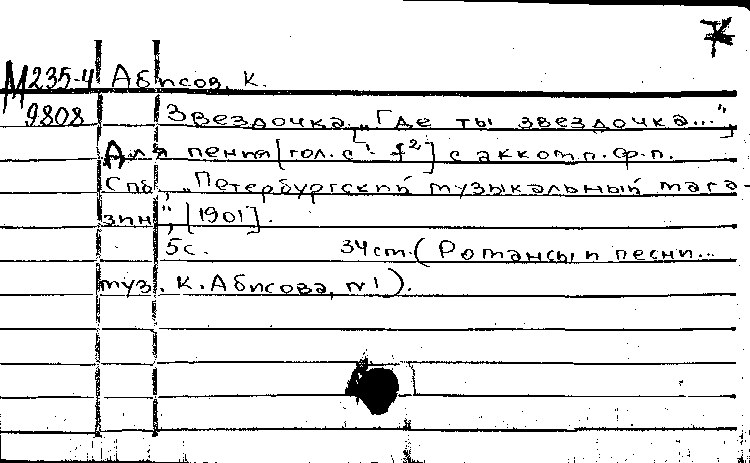 М235-4 Абисов, К.
9808 Звездочка. „Где ты звездочка...",
Для пения [гол. c¹ - f²] с аккомп. ф.п.
Спб, „Петербургский музыкальный мага-
зин", [1901].
5с. 34 см. (Романсы и песни...
муз. К. Абисова, №1).